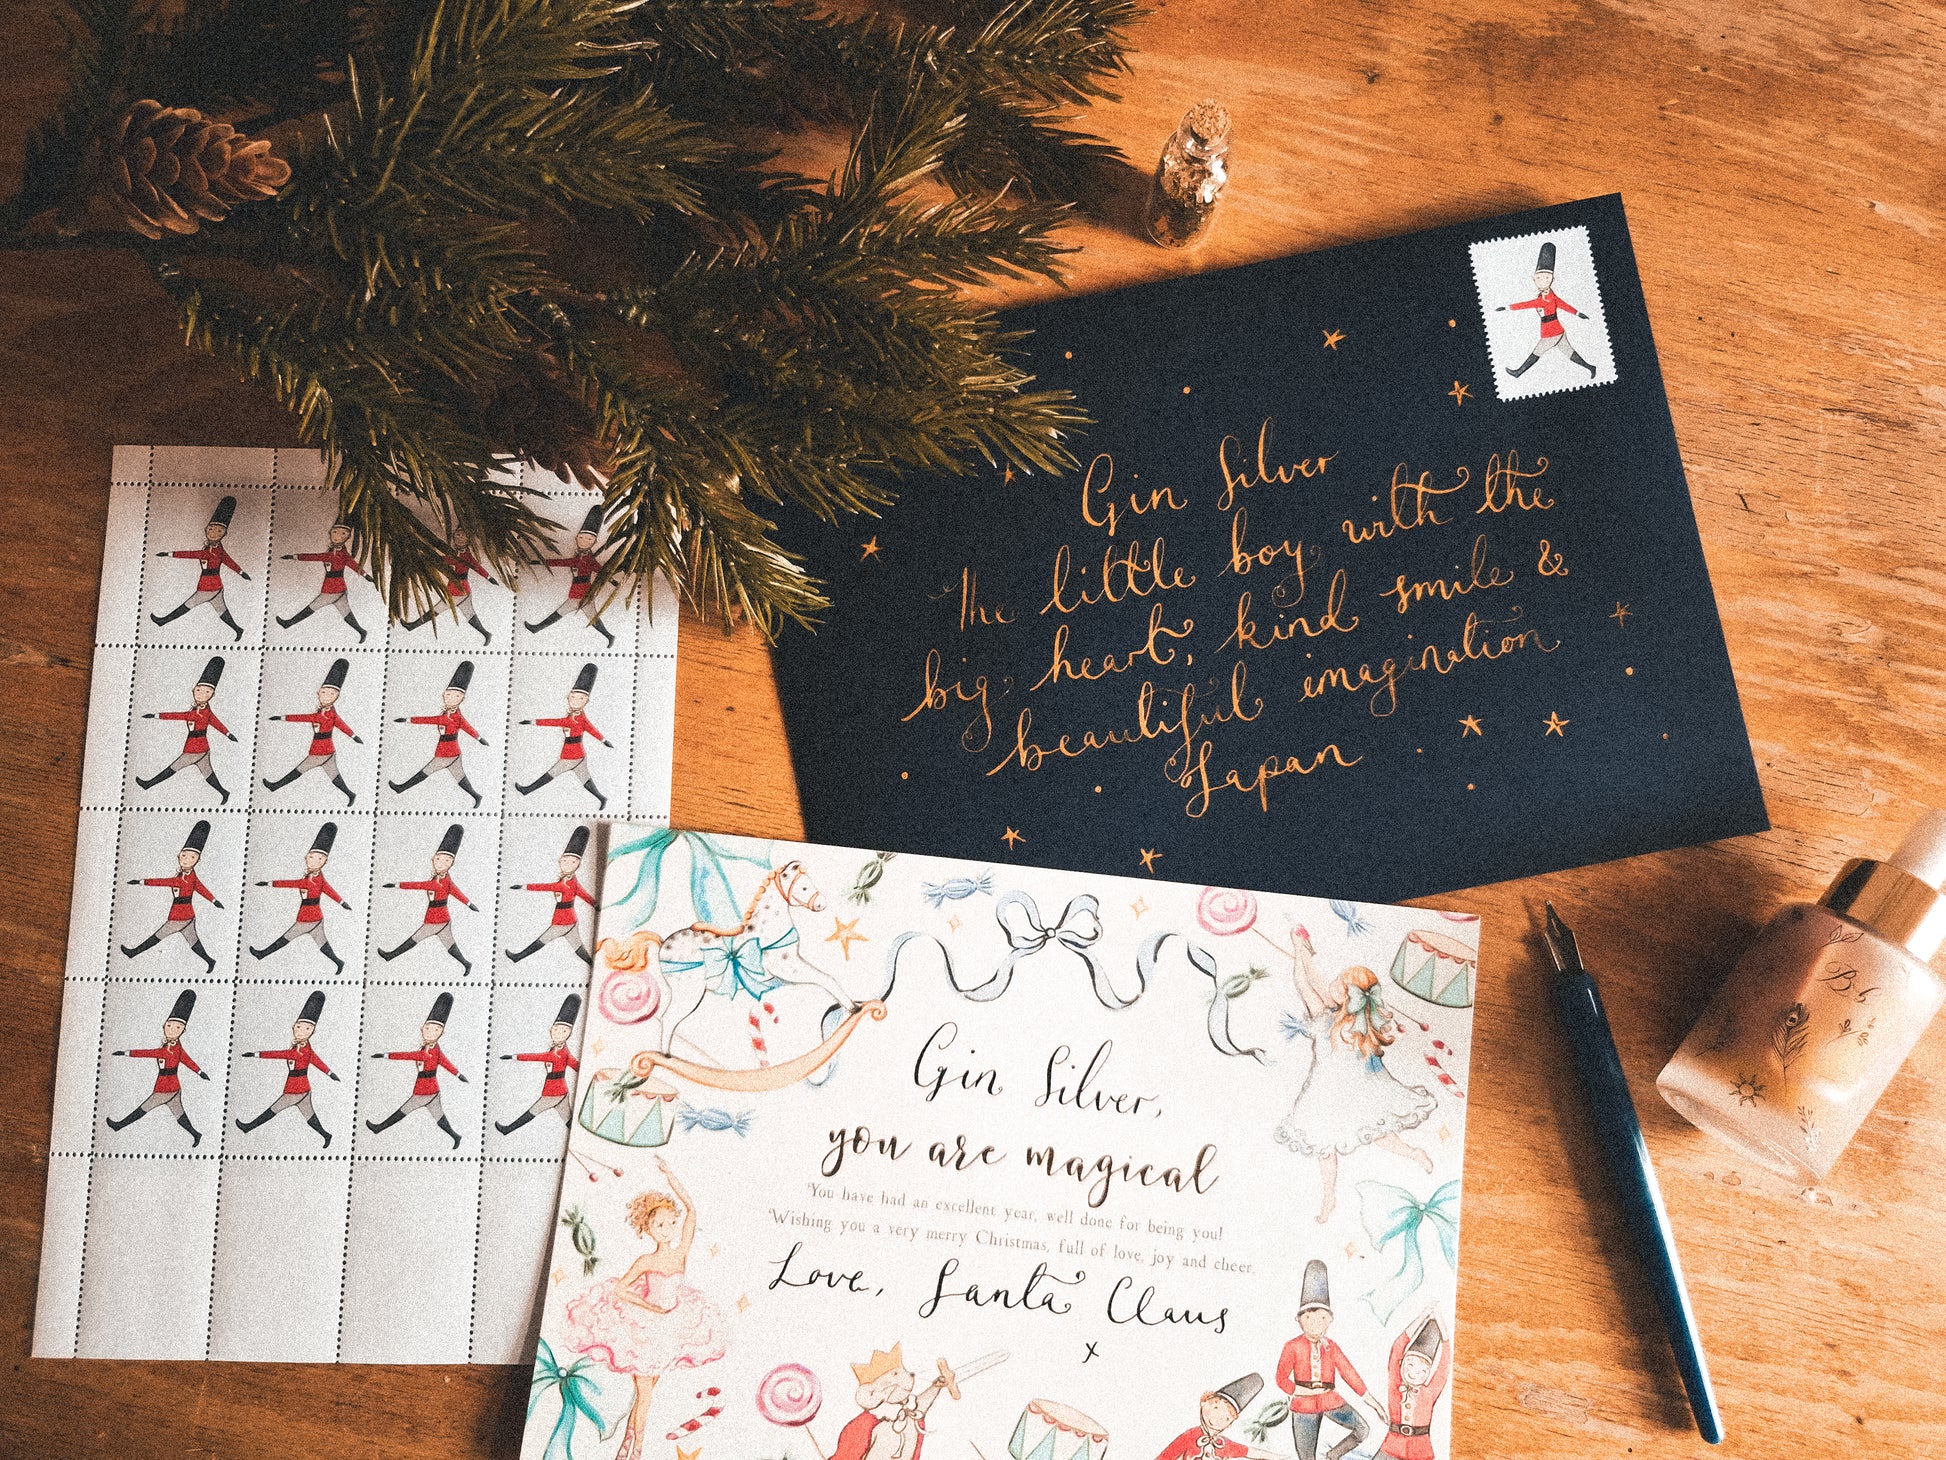 Gin Silver
The little boy with the
big heart, kind smile &
beautiful imagination
Japan
Gin Silver,
you are magical
You have had an excellent year, well done for being you!
Wishing you a very merry Christmas, full of love, joy and cheer.
Love, Santa Claus
x